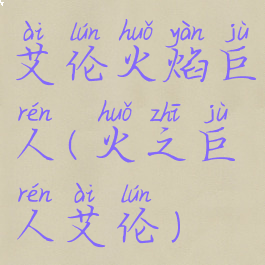 ài lún huǒ yàn jù
艾伦火焰巨
rén huǒ zhī jù
人(火之巨
rén ài lún
人艾伦)